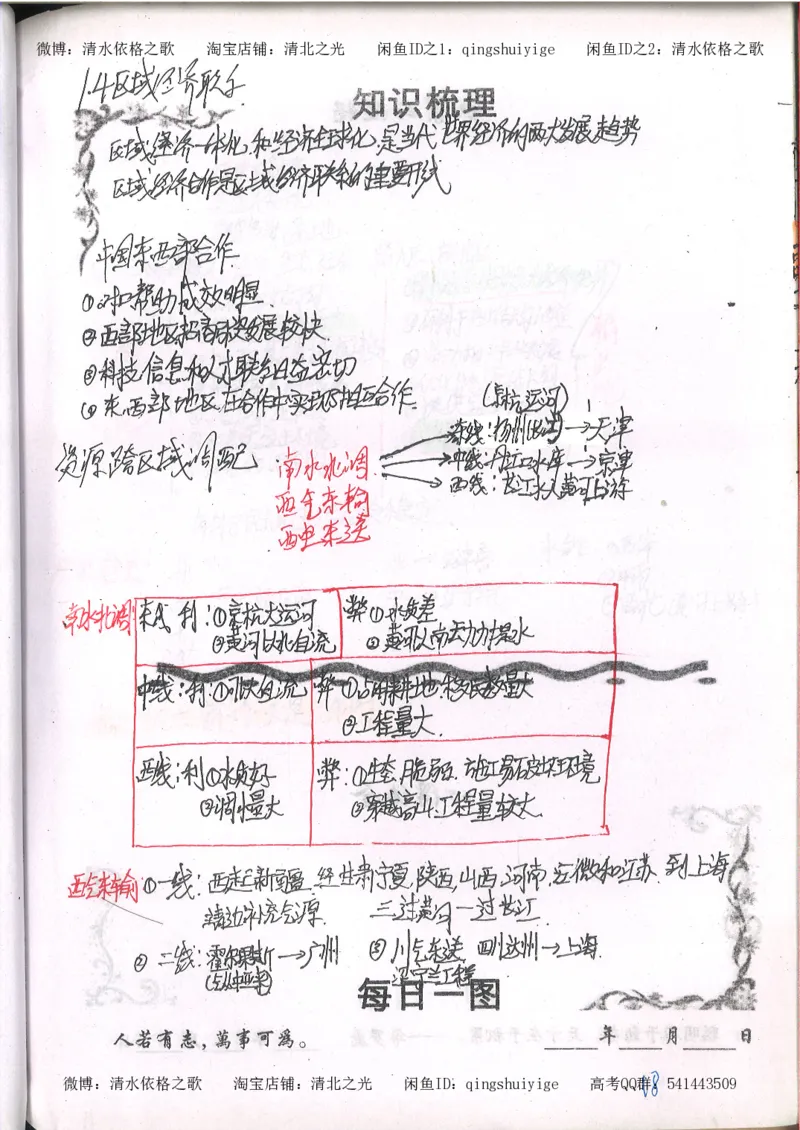 微博：清水依格之歌 淘宝店铺：清北之光 闲鱼ID之1：qingshuiyige 闲鱼ID之2：清水依格之歌
1.4区域经济联系
知识梳理
区域经济一体化和经济全球化,是当代世界经济的两大发展趋势
区域经济合作是区域经济联系的重要形式
中国东西部合作
①对口帮助成效明显
②西部地区招商引资发展较快
③科技、信息和人才联系日益密切
④东、西部地区在合作中实现相互合作.
(京杭运河)
资源跨区域调配 南水北调 东线:扬州(长江)→天津
中线:丹江口水库→京津
西气东输 西线:长江水入黄河上游
西电东送
南水北调 东线 利:①京杭大运河 弊①水质差
②黄河以北自流 ②黄河以南动力提水
中线:利:①可以自流 弊①占用耕地,移民数量大
②工程量大.
西线:利①水质好 弊:①生态脆弱.施工易破坏环境
②调水量大 ②穿越高山.工程量较大.
西气东输 ①一线:西起新疆.经甘肃,宁夏,陕西,山西,河南,安徽和江苏.到上海
靖边补充气源. 三过黄河一过长江.
②二线:霍尔果斯→广州 ③川气东送 四川达州→上海.
每日一图
人若有志，萬事可為。 年 月 日
微博：清水依格之歌 淘宝店铺：清北之光 闲鱼ID：qingshuiyige 高考QQ群：541443509